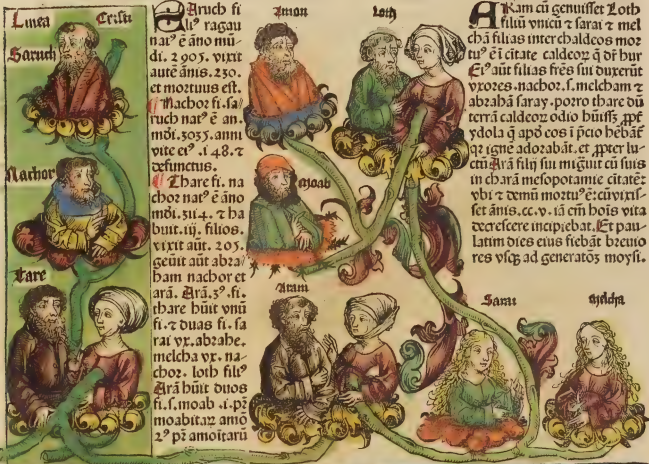 Linea Cristi
Saruch
Nachor
Tare
Saruch fi
liꝰ ragau
natꝰ ē āno mū
di. 2905. vixit
autē ānis. 230.
et mortuus est.
Nachor fi. sa
ruch natꝰ ē an.
mōi. 3035. anni
vite eiꝰ .148. ⁊
defunctus.
Thare fi. na
chor natꝰ ē āno
mōi. 3114. ⁊ ha
buit .iij. filios.
vixit aūt. 205.
genūit aūt abra
ham nachor et
arā. Arā. 3ꝰ. fi.
thare hūit vnū
fi. ⁊ duas fi. sa
rai vx. abrahe.
melcha vx. na-
chor. loth filꝰ
Arā hūit duos
fi. s. moab .i. pr̄
moabitaꝝ amō
2ꝰ pr̄ amoītarū
Amon
Loth
Moab
Aram
Sarai
Melcha
ARam cū genuisset Loth
filiū vnicū ⁊ sarai ⁊ mel
chā filias inter chaldeos mor
tuꝰ ē ī citate caldeoꝝ q̄ dr̄ hur
Eiꝰ aūt filias frēs sui duxerūt
vxores. nachor. s. melcham ⁊
abrahā saray. porro thare dū
terrā caldeoꝝ odio hūiss; ꝓpt̄
ydola q̄ apd̄ eos ī p̄cio hēbāt̄
qꝛ ignē adorabāt. et ꝓpter lu-
ctū Arā filij sui mīguit cū suis
in charā mesopotamie citatē:
vbi ⁊ demū mortuꝰ ē: cū vixis-
set ānis. cc. v. iā em̄ hoīs vita
decrescere incipiebat. Et pau-
latim dies eius fiebāt breuio
res vsqꝫ ad generatōꝫ moysi.